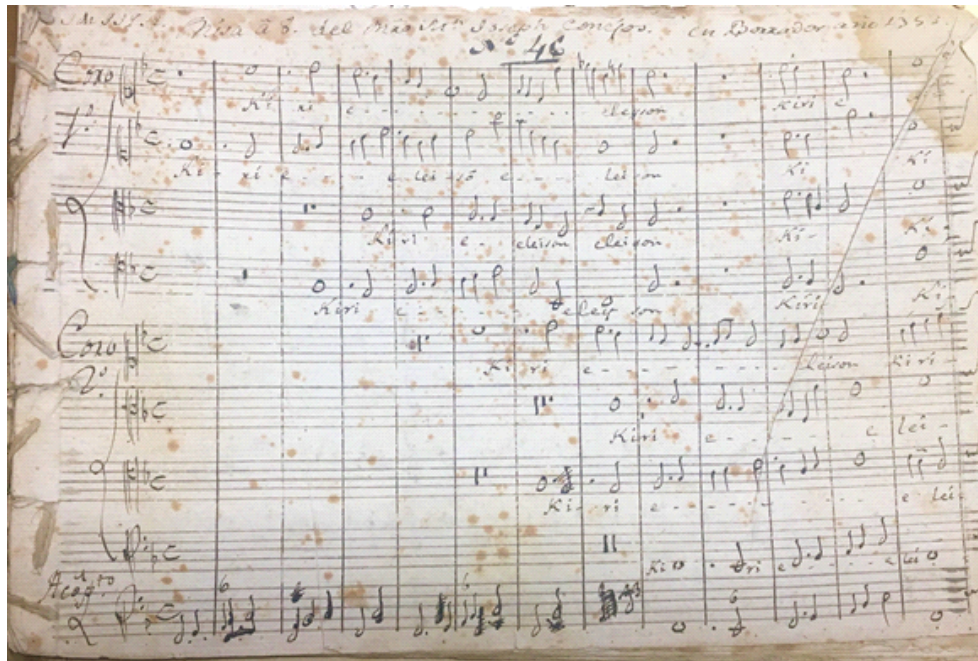 Misa à 8. del Mro Joseph Conejos. en Borrador año
Nº 46
Coro
Ki ri e - - - - - - eleison Kiri e
1º
Ki - ri e - - - e lei so e - - - leison Ki Ki
Kiri e - eleison eleison Ki - Ki
Kiri e - - - - - eleison Kiri Ki
Coro
Ki ri e - - - - - - - leison Kiri
2º
Kiri e - - - - e lei -
Ki - ri e - - - - - - e lei
Kiri e - - - e lei
Acompto
6 6 6